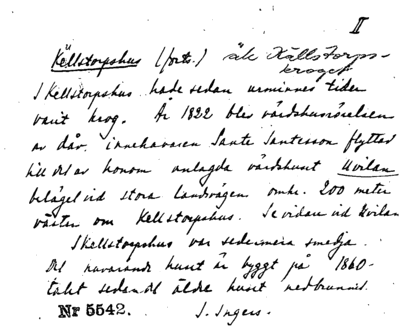 II
Källstorpshus (forts.) äv. Källstorps-
kroger
I Kellstorpshus hade sedan urminnes tider
varit krog. År 1822 blev värdshusrörelsen
av dåv. innehavaren Sante Santesson flyttad
till det av honom anlagda värdshuset Hvilan
beläget vid stora landsvägen omkr. 200 meter
väster om Kellstorpshus. Se vidare vid Hvilan
I Kellstorpshus var sedermera smedja.
Det nuvarande huset är byggt på 1860-
talet sedan det äldre huset nedbrunnit.
Nr 5542. S. Ingers.